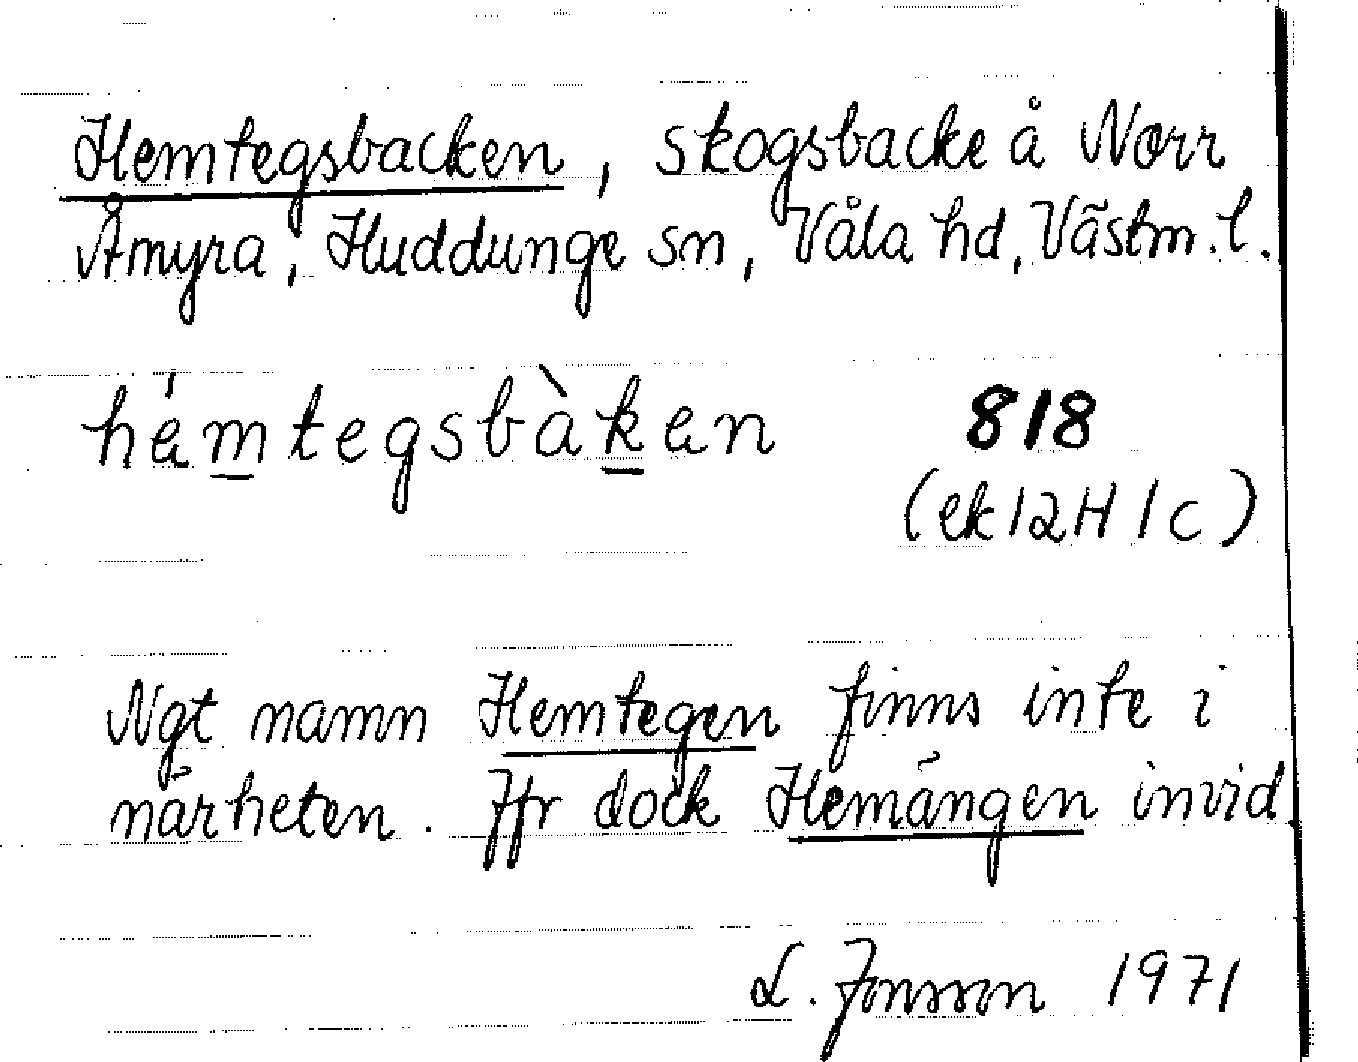 Hemtegsbacken, skogsbacke å Norr
Åmyra, Huddunge sn, Våla hd, Västm. l.
hémtegsbàken 818
(ek 12H 1c)
Ngt namn Hemtegen finns inte i
närheten. Jfr dock Hemängen invid.
L. Jonsson 1971